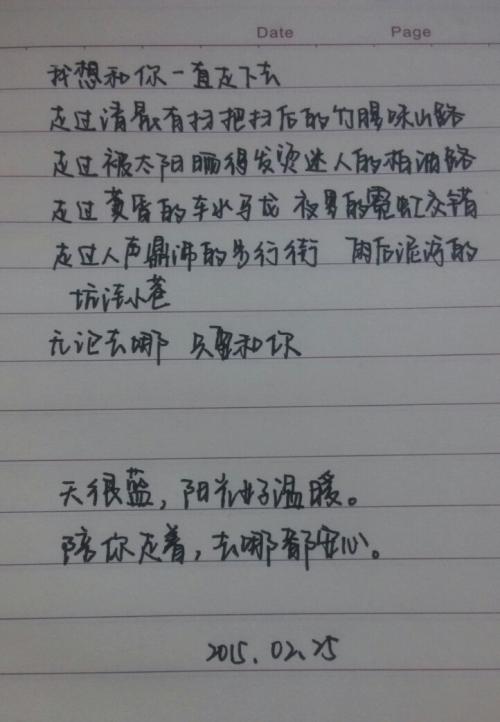 Date Page
我想和你一直走下去
走过清晨有扫把扫后的竹腥味山路
走过被太阳晒得发烫迷人的柏油路
走过黄昏的车水马龙 夜里的霓虹交错
走过人声鼎沸的步行街 雨后泥泞的
坑洼小巷
无论去哪 只要和你
天很蓝，阳光好温暖。
陪你走着，去哪都安心。
2015.02.25